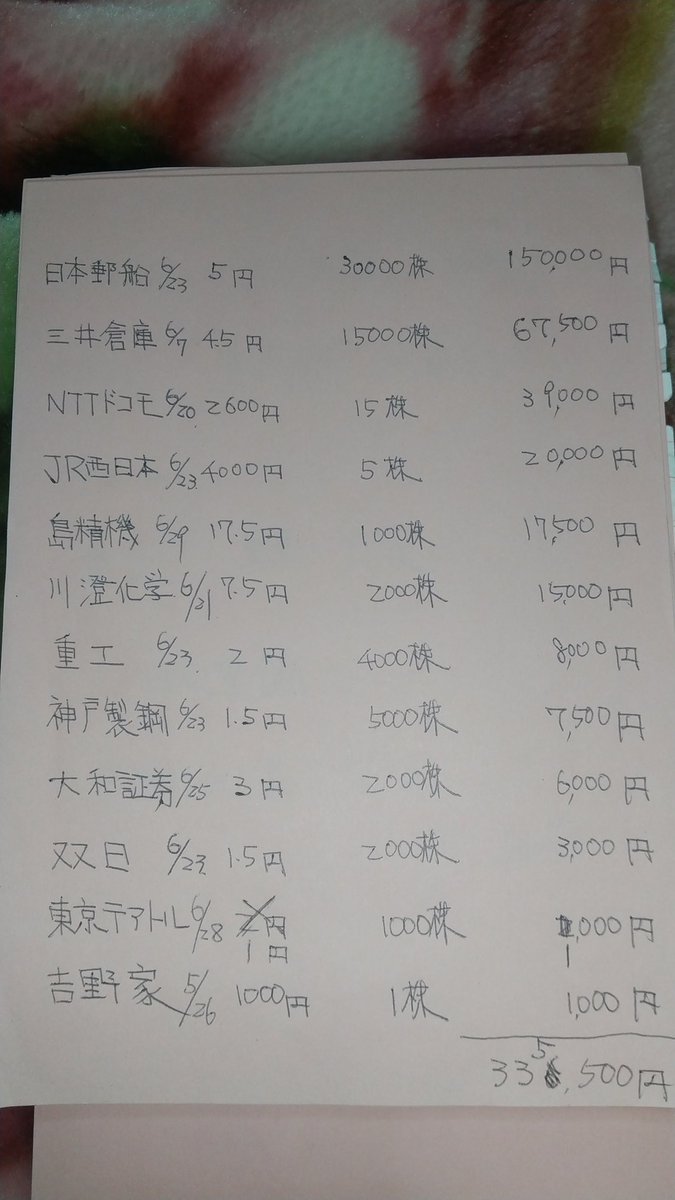 日本郵船 6/23 5円 30000株 150,000円
三井倉庫 6/7 4.5円 15000株 67,500円
NTTドコモ 6/20 2600円 15株 39,000円
JR西日本 6/23 4000円 5株 20,000円
島精機 6/29 17.5円 1000株 17,500円
川澄化学 6/21 7.5円 2000株 15,000円
重工 6/23 2円 4000株 8,000円
神戸製鋼 6/23 1.5円 5000株 7,500円
大和証券 6/25 3円 2000株 6,000円
双日 6/23 1.5円 2000株 3,000円
東京テアトル 6/28 1円 1000株 1,000円
吉野家 5/26 1000円 1株 1,000円
335,500円